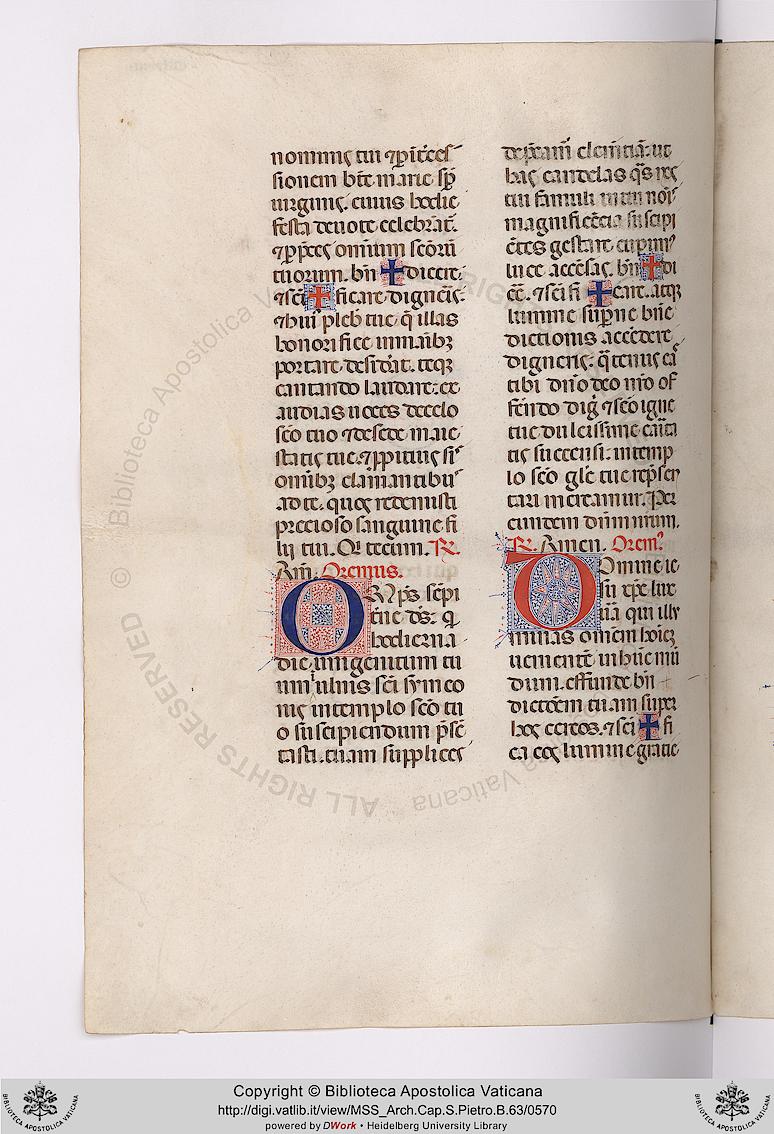 nominis tui ⁊ ꝑ ĩt̃ces
sionem bt̃e marie sꝑ
uirginis. cuius hodie
festa deuote celebrãt̃.
⁊ p̃ces omnium sc̃orũ
tuorum. bñ ✝ dicere
⁊ sc̃i ✝ ficare digneris:
⁊ hui᾽ pleb᾽ tue q̃ illas
honorifice in manibꝫ
portare desid̾at. teqꝫ
cantando laudare: ex
audias uoces de celo
sc̃o tuo ⁊ de sede maie
statis tue. ⁊ ꝓpitius sis
omĩbꝫ clamantibus
ad te. quos redemisti
precioso sanguine fi
lij tui. Q̃ tecum. R̃.
Am̃. Oremus.
OMp̃s sẽpi
tne ds̃. q̃
hodierna
die unigenitum tu
um ulnis sc̃i symeo
nis in templo sc̃o tu
o suscipiendum p̃sẽ
tasti. tuam supplices
dep̃cam᾽ clementiã. ut
has candelas q̃s nos
tui famuli in tui noĩs
magnificẽcia suscipi
ẽtes gestare cupim᾽
luce accẽsas. bñ ✝ di
c̃e. ⁊ sc̃i fi ✝ care. atqꝫ
lumine suꝑne bñe
dictionis accẽdere
digneris: q̃tenus eã
tibi dño deo nr̃o of
fer̃ndo dig̃ ⁊ sc̃o igne
tue dulcissime carĩta
tis succensi: in temp
lo sc̃o gl̃e tue rep̃sen
tari mereamur. Per
eundem dñm nr̃um.
R̃. Amen. Orem᾽.
Domine ie
su xp̃e lux
u̾a qui illu
minas omẽm hoiez
uenientẽ in hũc mũ
dum. effunde bñ
dictõem tuam super
hos cereos. ⁊ sc̃i ✝ fi
ca eos lumine gratie
© Biblioteca Apostolica Vaticana
ALL RIGHTS RESERVED
Copyright © Biblioteca Apostolica Vaticana
http://digi.vatlib.it/view/MSS_Arch.Cap.S.Pietro.B.63/0570
powered by DWork • Heidelberg University Library
BIBLIOTECA APOSTOLICA VATICANA
BIBLIOTECA APOSTOLICA VATICANA